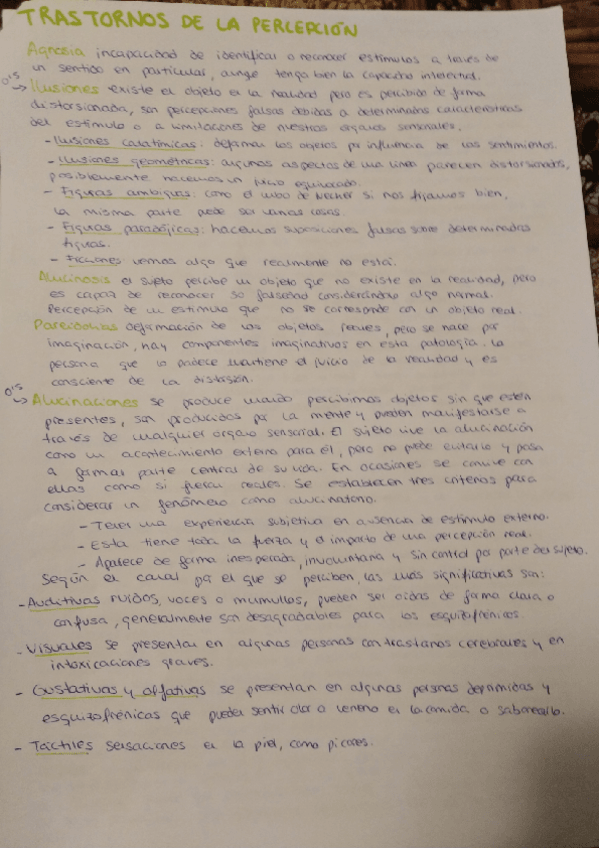 TRASTORNOS DE LA PERCEPCIÓN
Agnosia incapacidad de identificar o reconocer estímulos a través de
un sentido en particular, aunqe tenga bien la capacidad intelectual.
0'5
→ Ilusiones existe el objeto en la realidad pero es percibido de forma
distorsionada, son percepciones falsas debidas a determinadas características
del estímulo o a limitaciones de nuestros órganos sensoriales.
- Ilusiones catatímicas: deformar los objetos por influencia de los sentimientos.
- Ilusiones geométricas: algunos aspectos de una línea parecen distorsionados,
posiblemente hacemos un juicio equivocado.
- Figuras ambiguas: como el cubo de Necker si nos fijamos bien,
la misma parte puede ser varias cosas.
- Figuras paradójicas: hacemos suposiciones falsas sobre determinadas
figuras.
- Ficciones: vemos algo que realmente no está.
Alucinosis el sujeto percibe un objeto que no existe en la realidad, pero
es capaz de reconocer su falsedad considerándolo algo normal.
Percepción de un estímulo que no se corresponde con un objeto real.
Pareidolias deformación de los objetos reales, pero se hace por
imaginación, hay componentes imaginativos en esta patología. La
persona que lo padece mantiene el juicio de la realidad y es
consciente de la distorsión.
0'5
→ Alucinaciones se produce cuando percibimos objetos sin que estén
presentes, son producidos por la mente y pueden manifestarse a
través de cualquier órgano sensorial. El sujeto vive la alucinación
como un acontecimiento externo para él, pero no puede evitarlo y pasa
a formar parte central de su vida. En ocasiones se convive con
ellas como si fueran reales. Se establecen tres criterios para
considerar un fenómeno como alucinatorio.
- Tener una experiencia subjetiva en ausencia de estímulo externo.
- Esta tiene toda la fuerza y el impacto de una percepción real.
- Aparece de forma inesperada, involuntaria y sin control por parte del sujeto.
Según el canal por el que se perciben, las más significativas son:
- Auditivas ruidos, voces o murmullos, pueden ser oídas de forma clara o
confusa, generalmente son desagradables para los esquizofrénicos.
- Visuales se presentan en algunas personas con trastornos cerebrales y en
intoxicaciones graves.
- Gustativas y olfativas se presentan en algunas personas deprimidas y
esquizofrénicas que pueden sentir olor a veneno en la comida o saborearlo.
- Táctiles sensaciones en la piel, como picores.